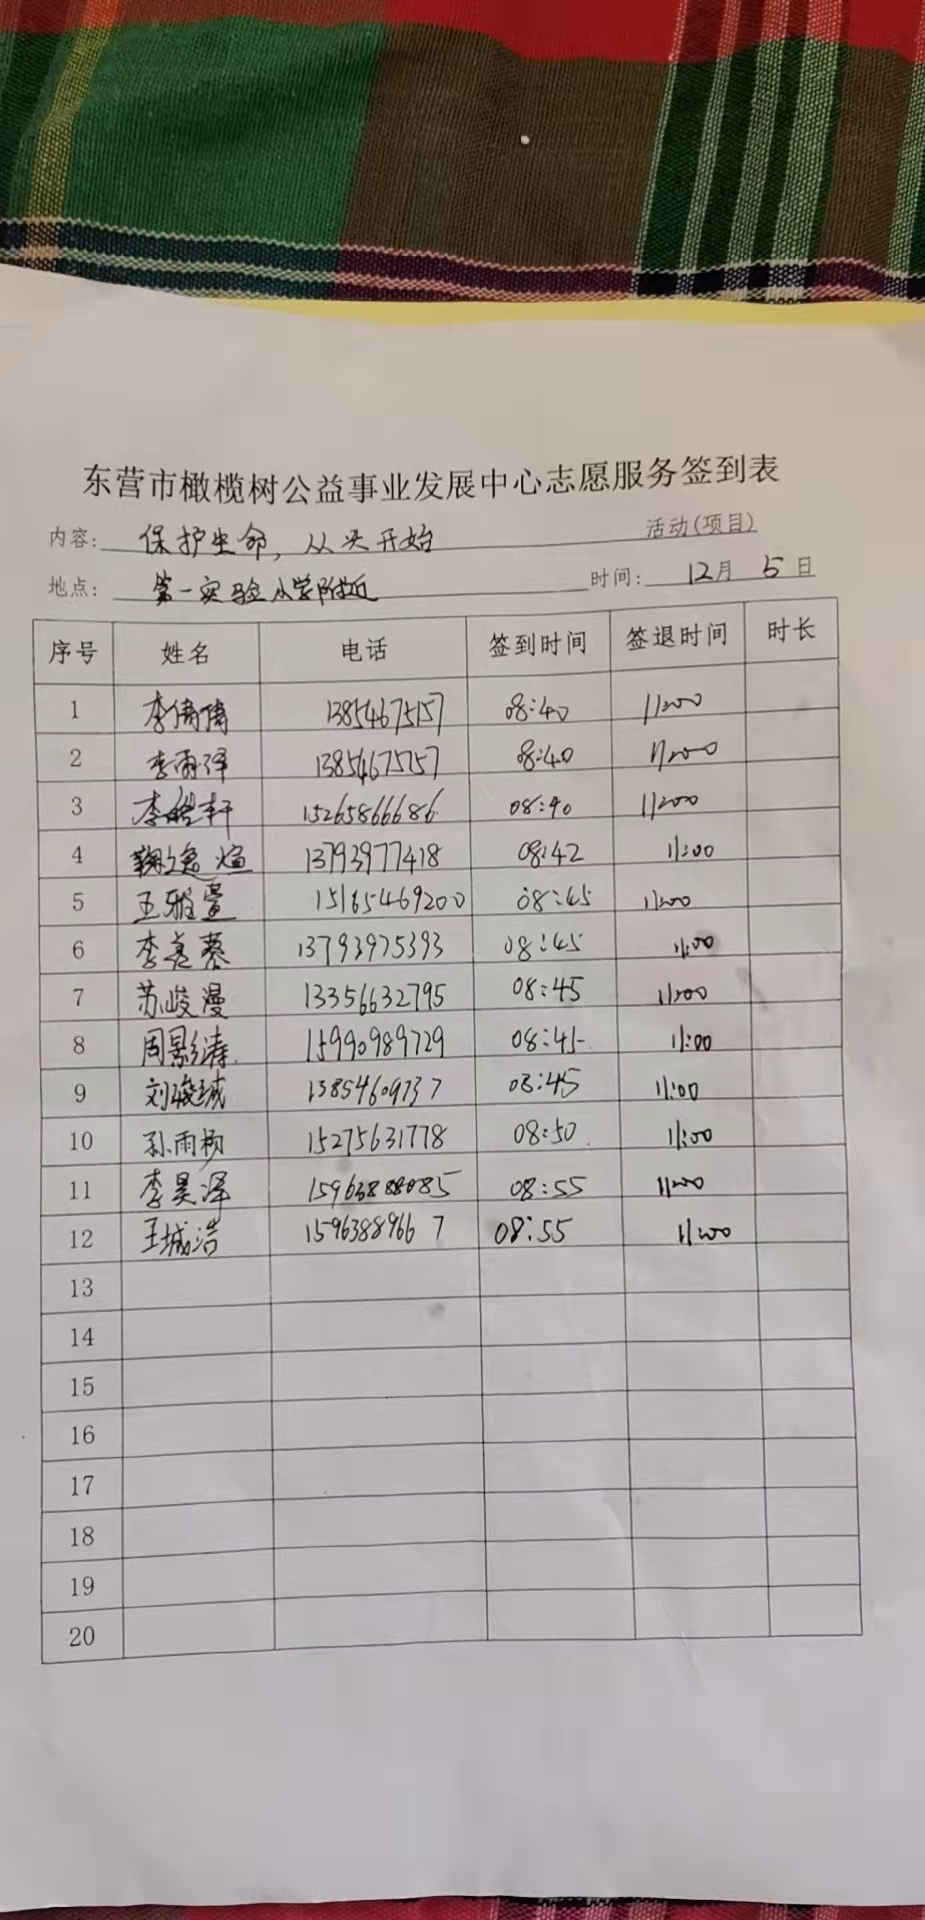 东营市橄榄树公益事业发展中心志愿服务签到表
内容: 保护生命，从头开始 活动(项目)
地点: 第一实验小学附近 时间: 12月 5日
序号 姓名 电话 签到时间 签退时间 时长
1 李倩倩 13854675157 08:40 11:00
2 李雨泽 13854675157 08:40 11:00
3 李皓轩 15265866686 08:40 11:00
4 鞠逸煊 13793977418 08:42 11:00
5 王雅萱 15165469200 08:45 11:00
6 李美蓉 13793975393 08:45 11:00
7 苏峻漫 13356632795 08:45 11:00
8 周影涛 15990989729 08:45 11:00
9 刘骏城 13854609737 08:45 11:00
10 孙雨杨 15275631778 08:50 11:00
11 李昊泽 15963888085 08:55 11:00
12 王城浩 15963889667 08:55 11:00
13
14
15
16
17
18
19
20